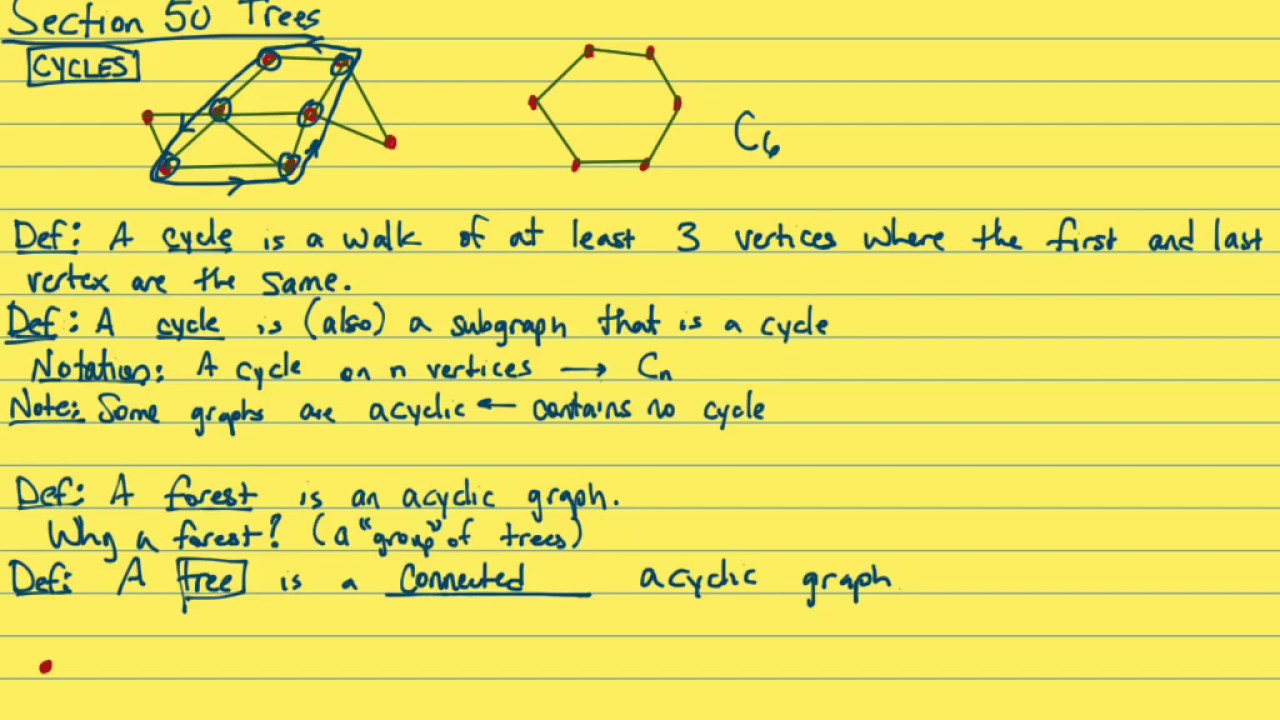 Section 50 Trees
CYCLES
C6
Def: A cycle is a walk of at least 3 vertices where the first and last
vertex are the same.
Def: A cycle is (also) a subgraph that is a cycle
Notation: A cycle on n vertices → Cn
Note: Some graphs are acyclic ← contains no cycle
Def: A forest is an acyclic graph.
Why a forest? (a "group" of trees)
Def: A tree is a connected acyclic graph